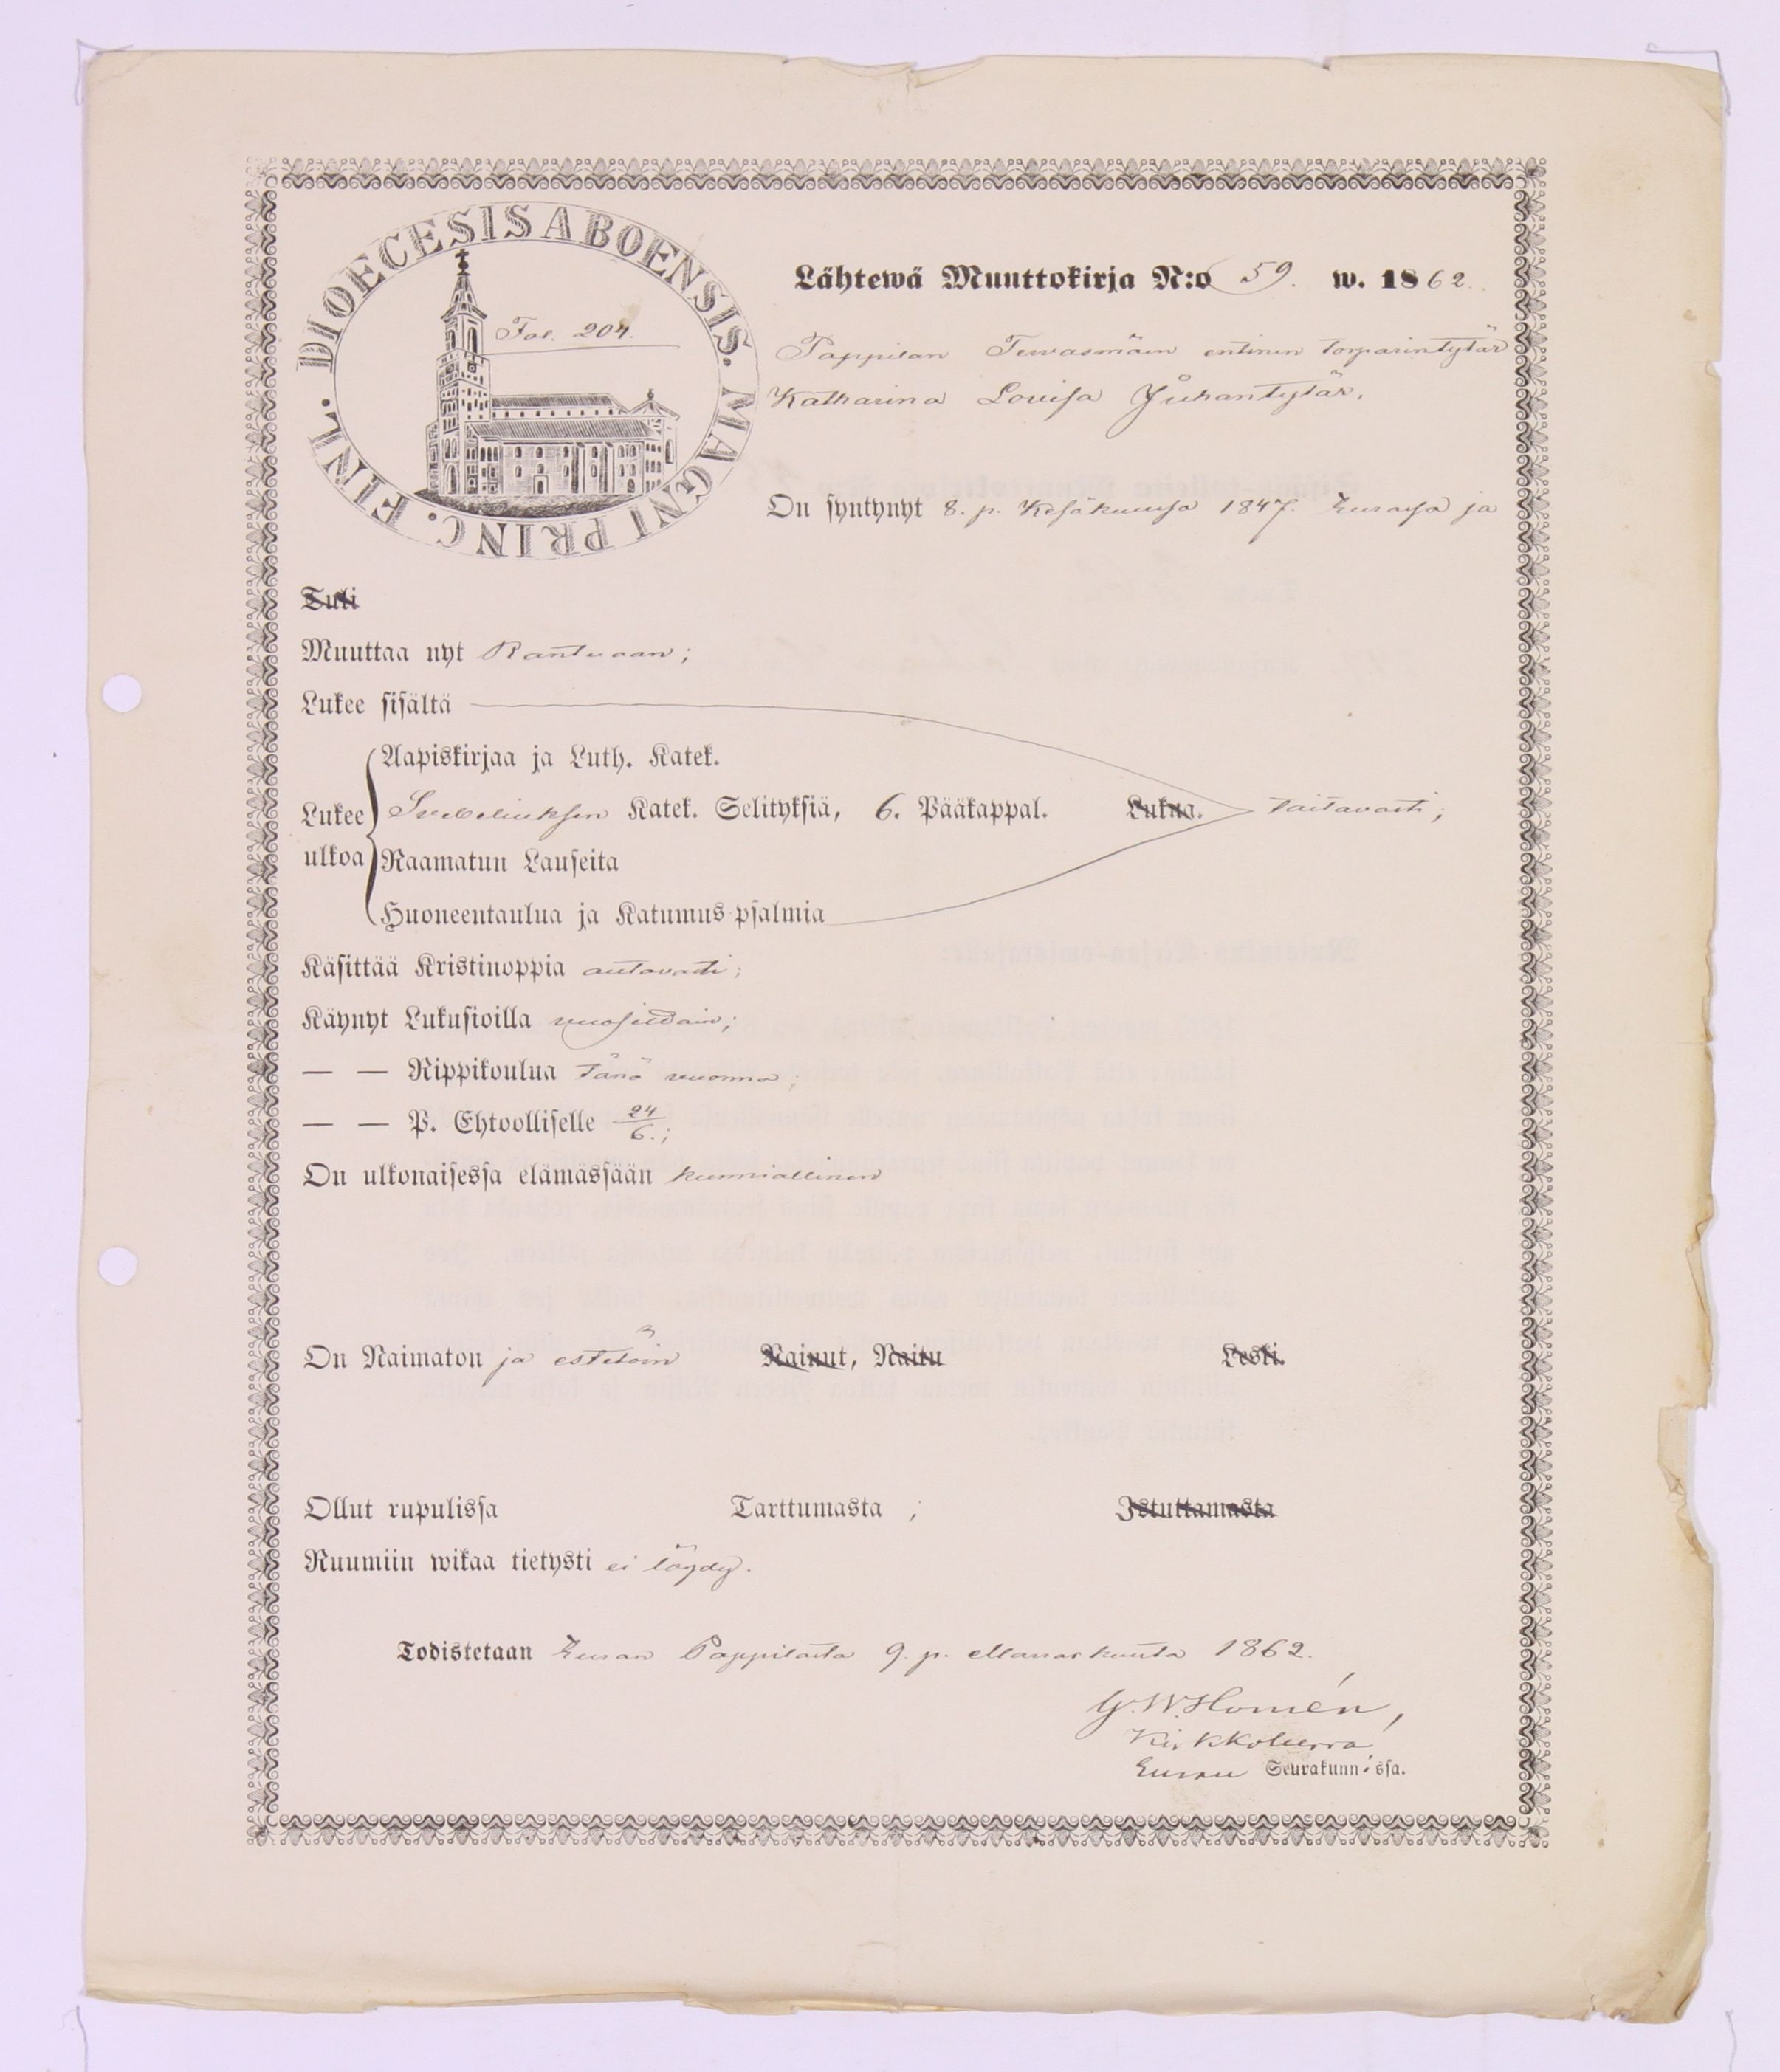 DIOECESIS ABOENSIS. MAGNI PRINC. FINL.
Fol. 204.
Lähtewä Muuttokirja N:o 59. w. 1862.
Pappilan Terwasmäen entinen torparintytär
Katharina Lovisa Juhantytär.
On syntynyt 8. p. Kesäkuussa 1847. Eurassa ja
Tuli
Muuttaa nyt Kantuaan;
Lukee sisältä
Aapiskirjaa ja Luth. Katek.
Lukee ulkoa
Svebeliuksen Katek. Selityksiä, 6. Pääkappal. Lukua. taitavasti;
Raamatun Lauseita
Huoneentaulua ja Katumus-psalmia
Käsittää Kristinoppia autavasti;
Käynyt Lukusioilla vuosittain;
— — Rippikoulua tänä vuonna;
— — P. Ehtoolliselle 24/6.;
On ulkonaisessa elämässään kunniallinen
On Naimaton ja estetöin Nainut, Naitu Leski.
Ollut rupulissa Tarttumasta ; Istuttamasta
Ruumiin wikaa tietysti ei löydy.
Todistetaan Euran Pappilasta 9. p. Marraskuuta 1862.
G. W. Homén,
Kirkkoherra
Euran Seurakunnissa.